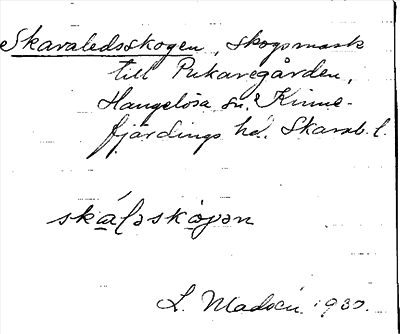 Skaraledsskogen, skogsmark
till Pukaregården,
Hangelösa sn. Kinne-
fjärdings hd. Skarab. l.
L. Madsén 1930.